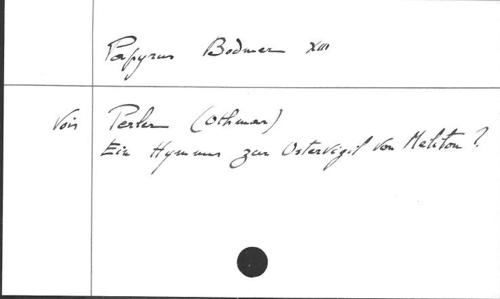 Papyrus Bodmer XIII
Vois Perler (Othmar)
Ein Hymnus zur Ostervigil von Meliton ?